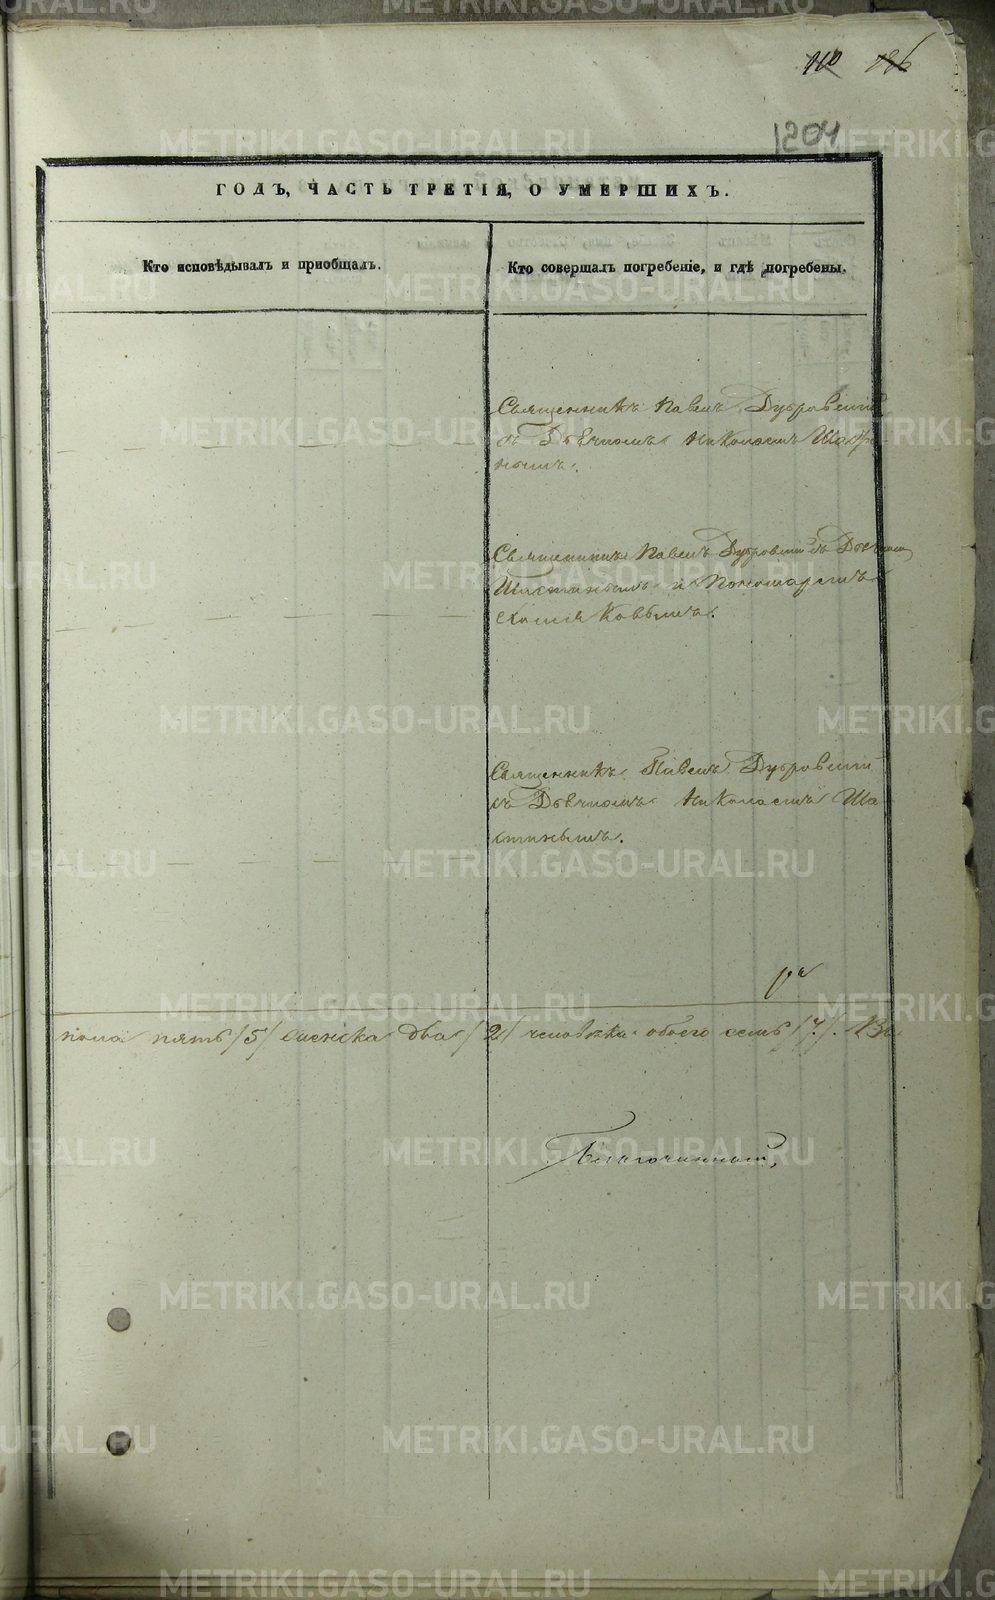 110 126
1204
ГОДЪ, ЧАСТЬ ТРЕТІЯ, О УМЕРШИХЪ.
Кто исповѣдывалъ и пріобщалъ.
Кто совершалъ погребеніе, и гдѣ погребены.
Священникъ Павелъ Дубровскій
съ Дьячкомъ Николаемъ
Священникъ Павелъ Дубровскій съ
и Пономаремъ
Священникъ Павелъ Дубровскій
съ Дьячкомъ Николаемъ Ша
стинымъ.
пола пять /5/ женска два /2/ человѣка обоего семь /7/.
Благочинный,
METRIKI.GASO-URAL.RU